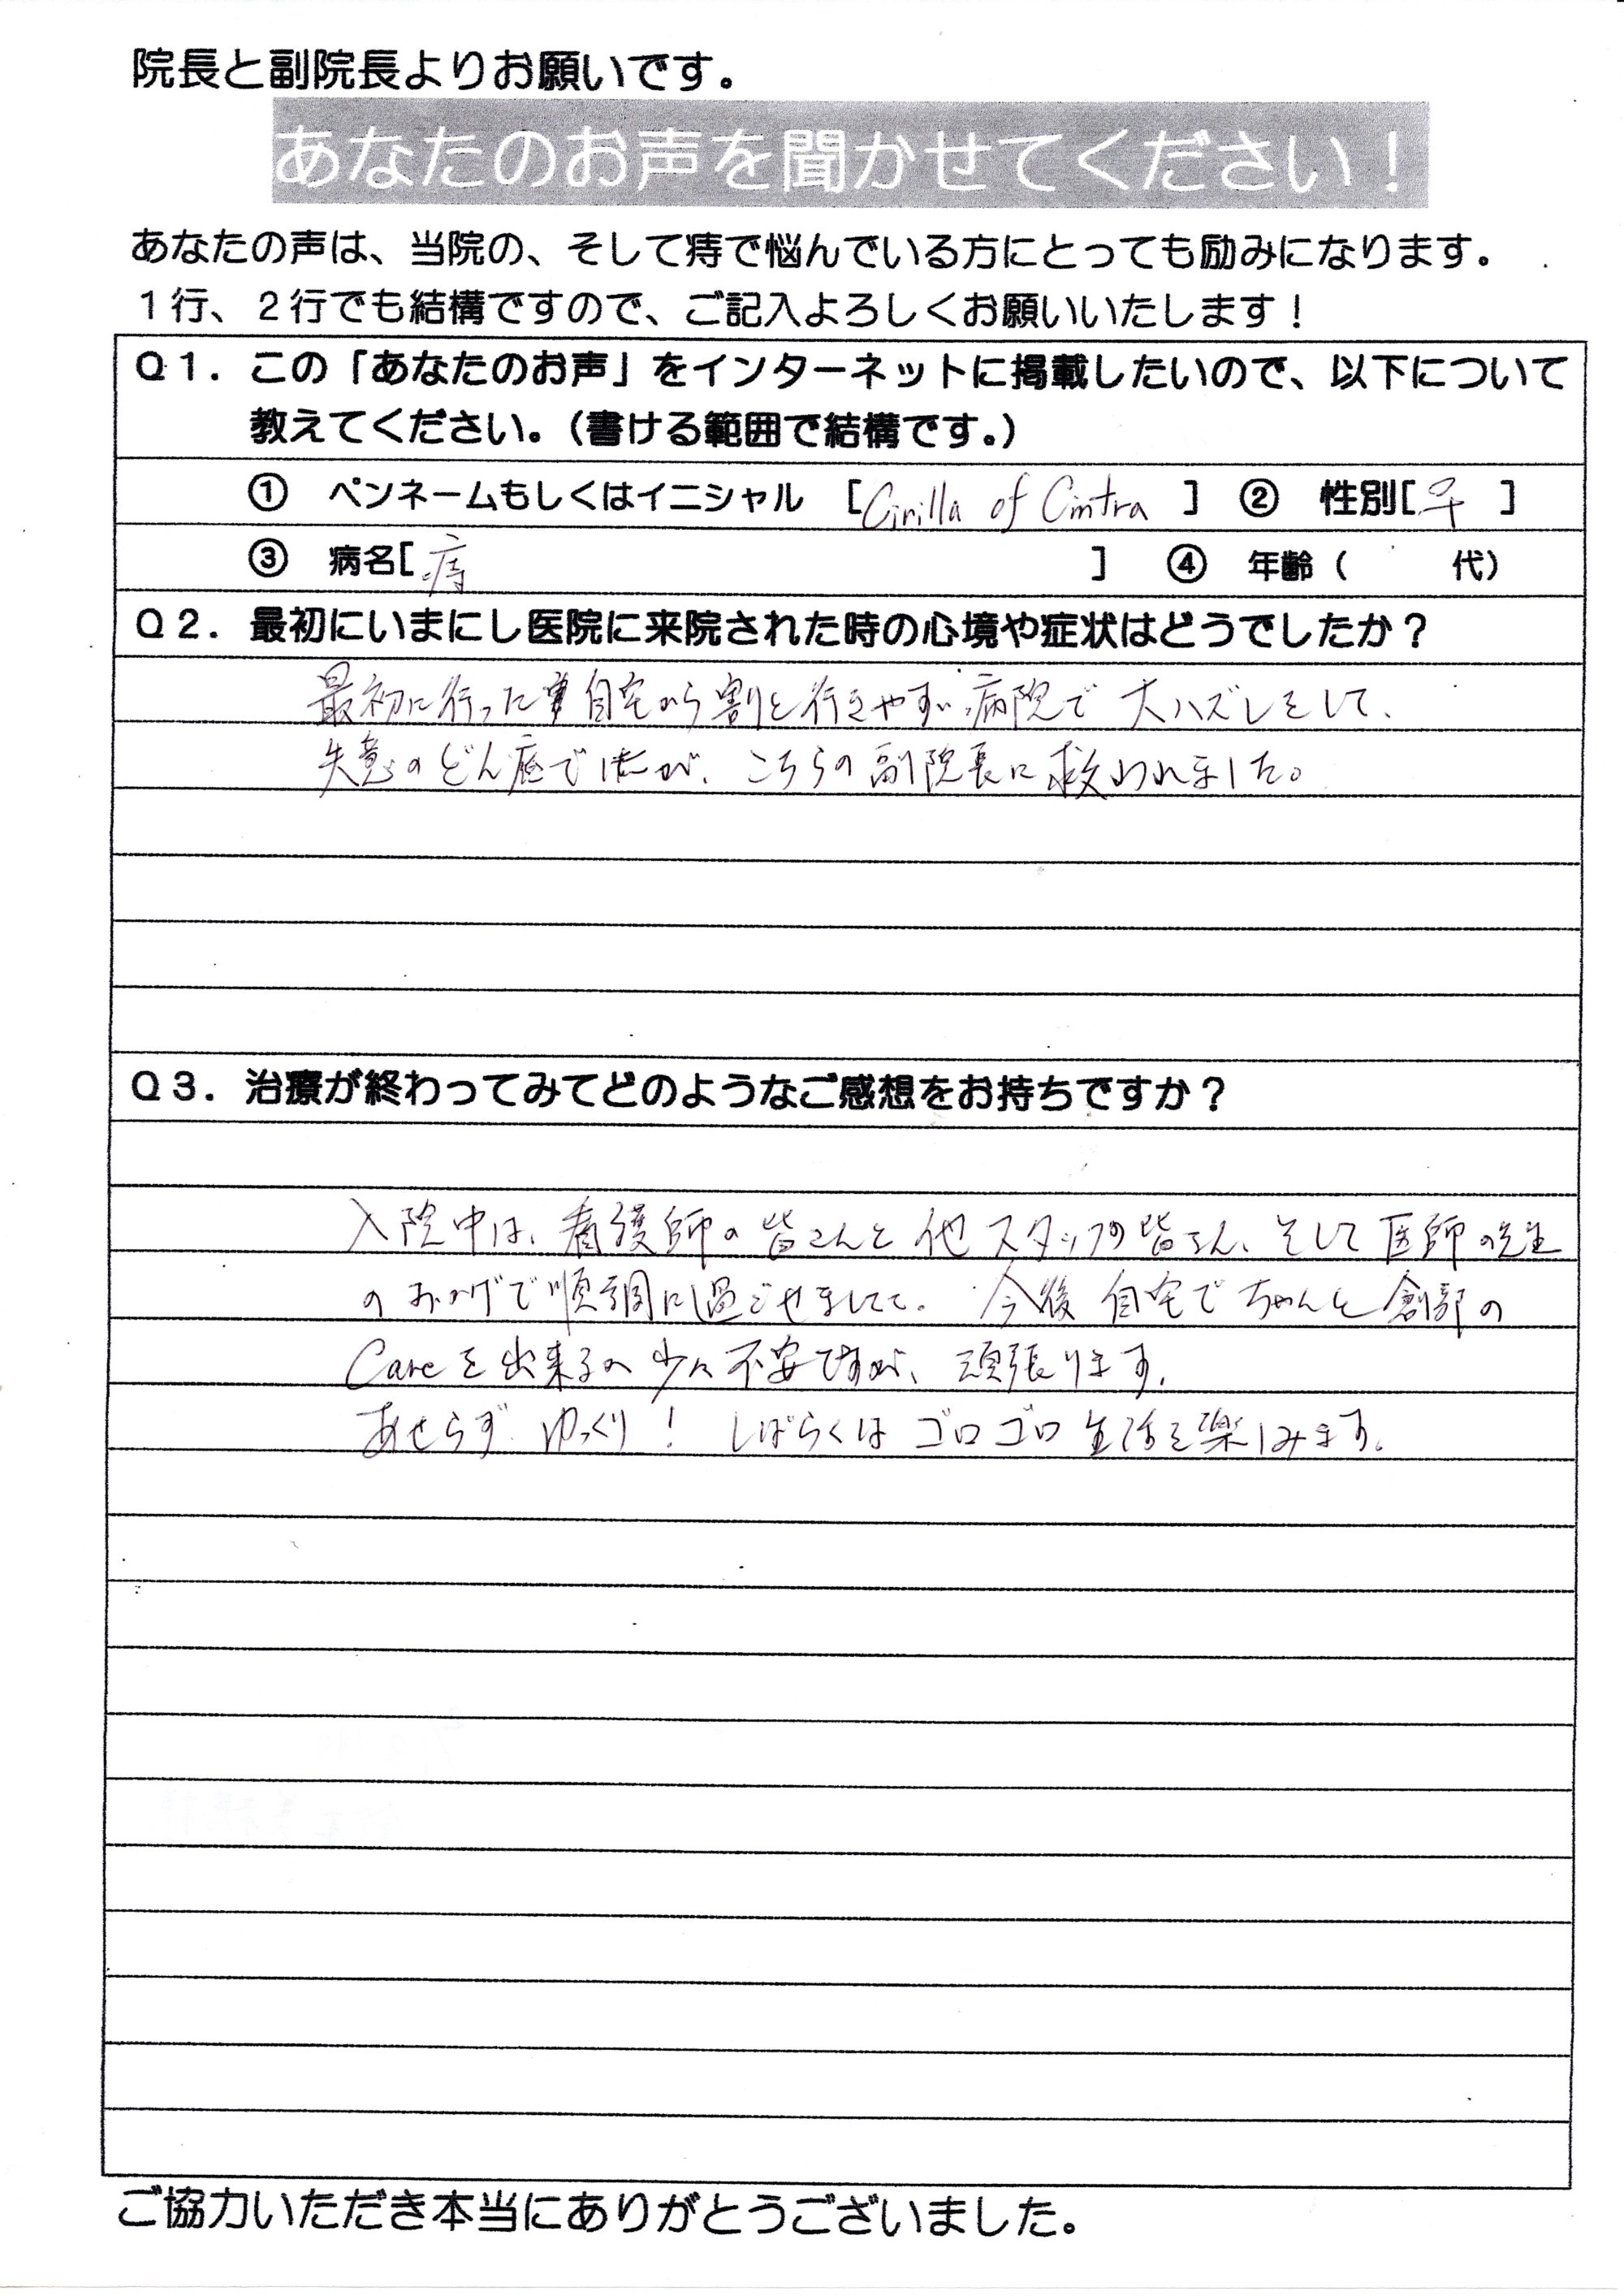 院長と副院長よりお願いです。
あなたのお声を聞かせてください！
あなたの声は、当院の、そして痔で悩んでいる方にとっても励みになります。
１行、２行でも結構ですので、ご記入よろしくお願いいたします！
Ｑ１．この「あなたのお声」をインターネットに掲載したいので、以下について
教えてください。（書ける範囲で結構です。）
① ペンネームもしくはイニシャル ［Cirilla of Cintra］ ② 性別［♀］
③ 病名［痔］ ④ 年齢（ 代）
Ｑ２．最初にいまにし医院に来院された時の心境や症状はどうでしたか？
最初に行った自宅から割と行きやすい病院で大ハズレをして、
失意のどん底でしたが、こちらの副院長に救われました。
Ｑ３．治療が終わってみてどのようなご感想をお持ちですか？
入院中は、看護師の皆さんと他スタッフの皆さん、そして医師の先生
のおかげで順調に過ごせました。今後自宅でちゃんと創部の
Careを出来るか少々不安ですが、頑張ります。
あせらず ゆっくり！ しばらくはゴロゴロ生活を楽しみます。
ご協力いただき本当にありがとうございました。